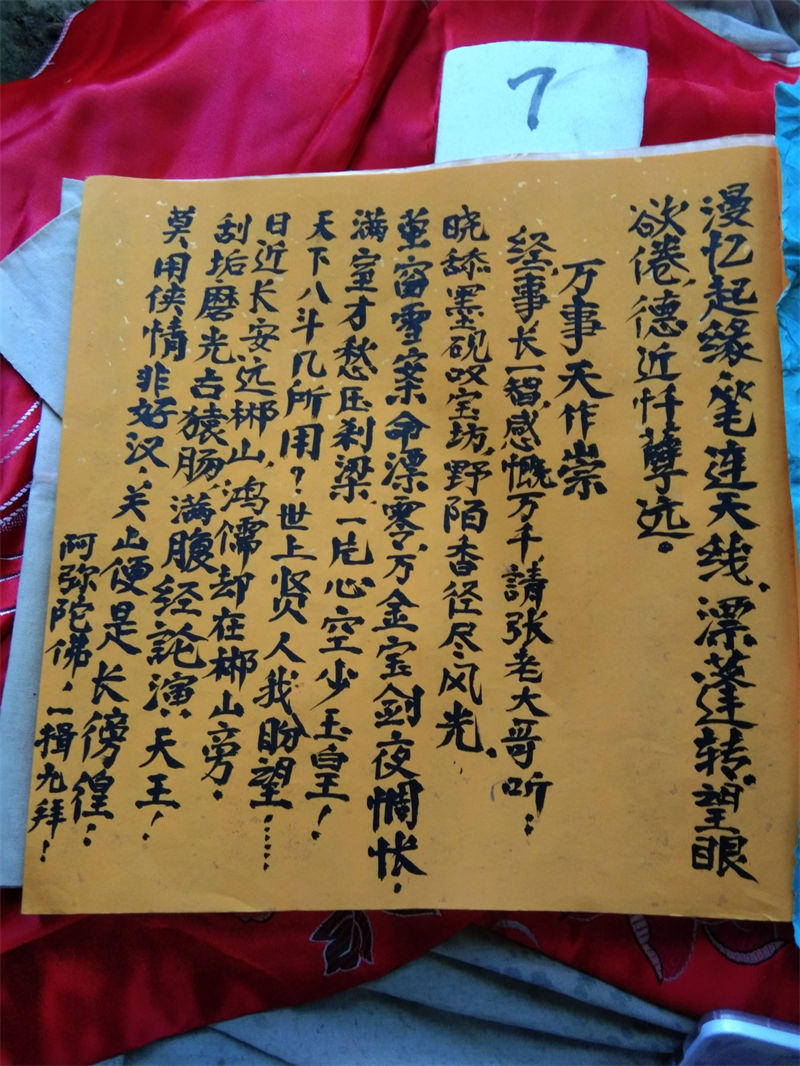 7
漫忆起缘，笔连天线，漂蓬转，望眼
欲倦，德近忏孽远。
万事天作祟
经事长一智，感慨万千，請张老大哥听：
晓舔墨砚叹宝坊，野陌香径尽风光，
萤窗雪案命漂零，万金宝剑夜惆怅，
满室才愁压刹梁，一片心空少玉皇！
天下八斗几所用？世上贤人我盼望……
日近长安远郴山，鸿儒却在郴山旁。
刮垢磨光古猿肠，满腹经論演天王！
莫用侠情非好汉，关山便是长徬徨：
阿弥陀佛，一揖九拜！